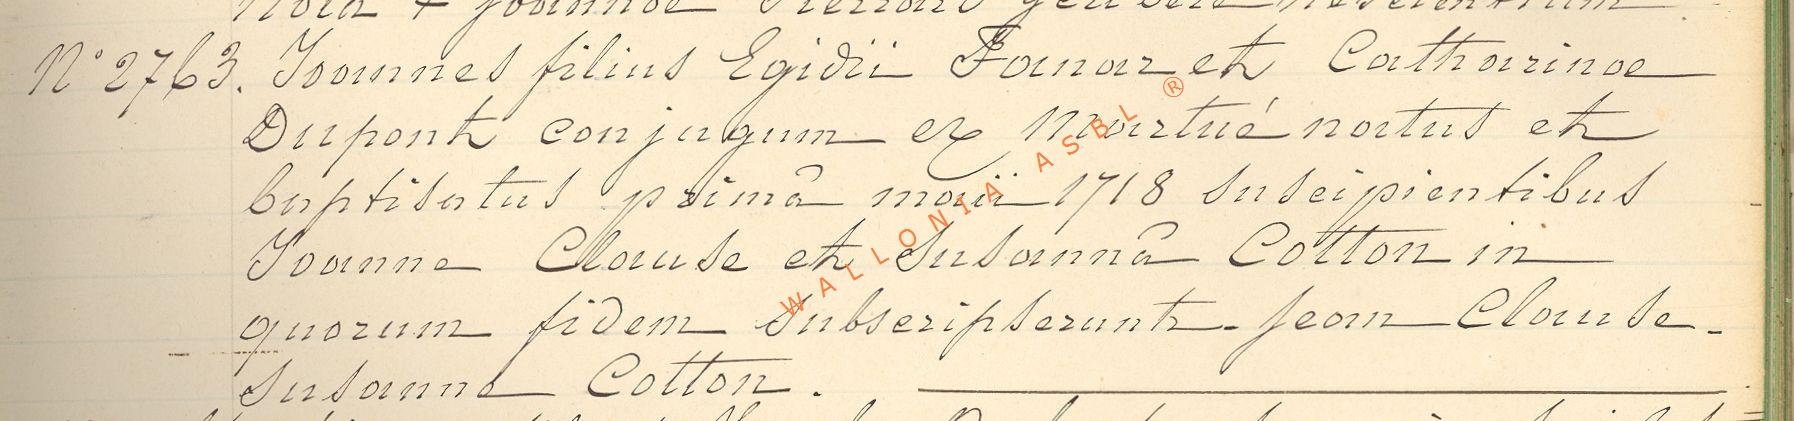 N° 2763. Joannes filius Egidii Fanar et Catharinae
Dupont conjugum ex Martué natus et
baptisatus primâ maii 1718 suscipientibus
Joanne Clause et Susannâ Cotton in
quorum fidem subscripserunt - Jean Clause -
Susanne Cotton .
WALLONIA ASBL ®